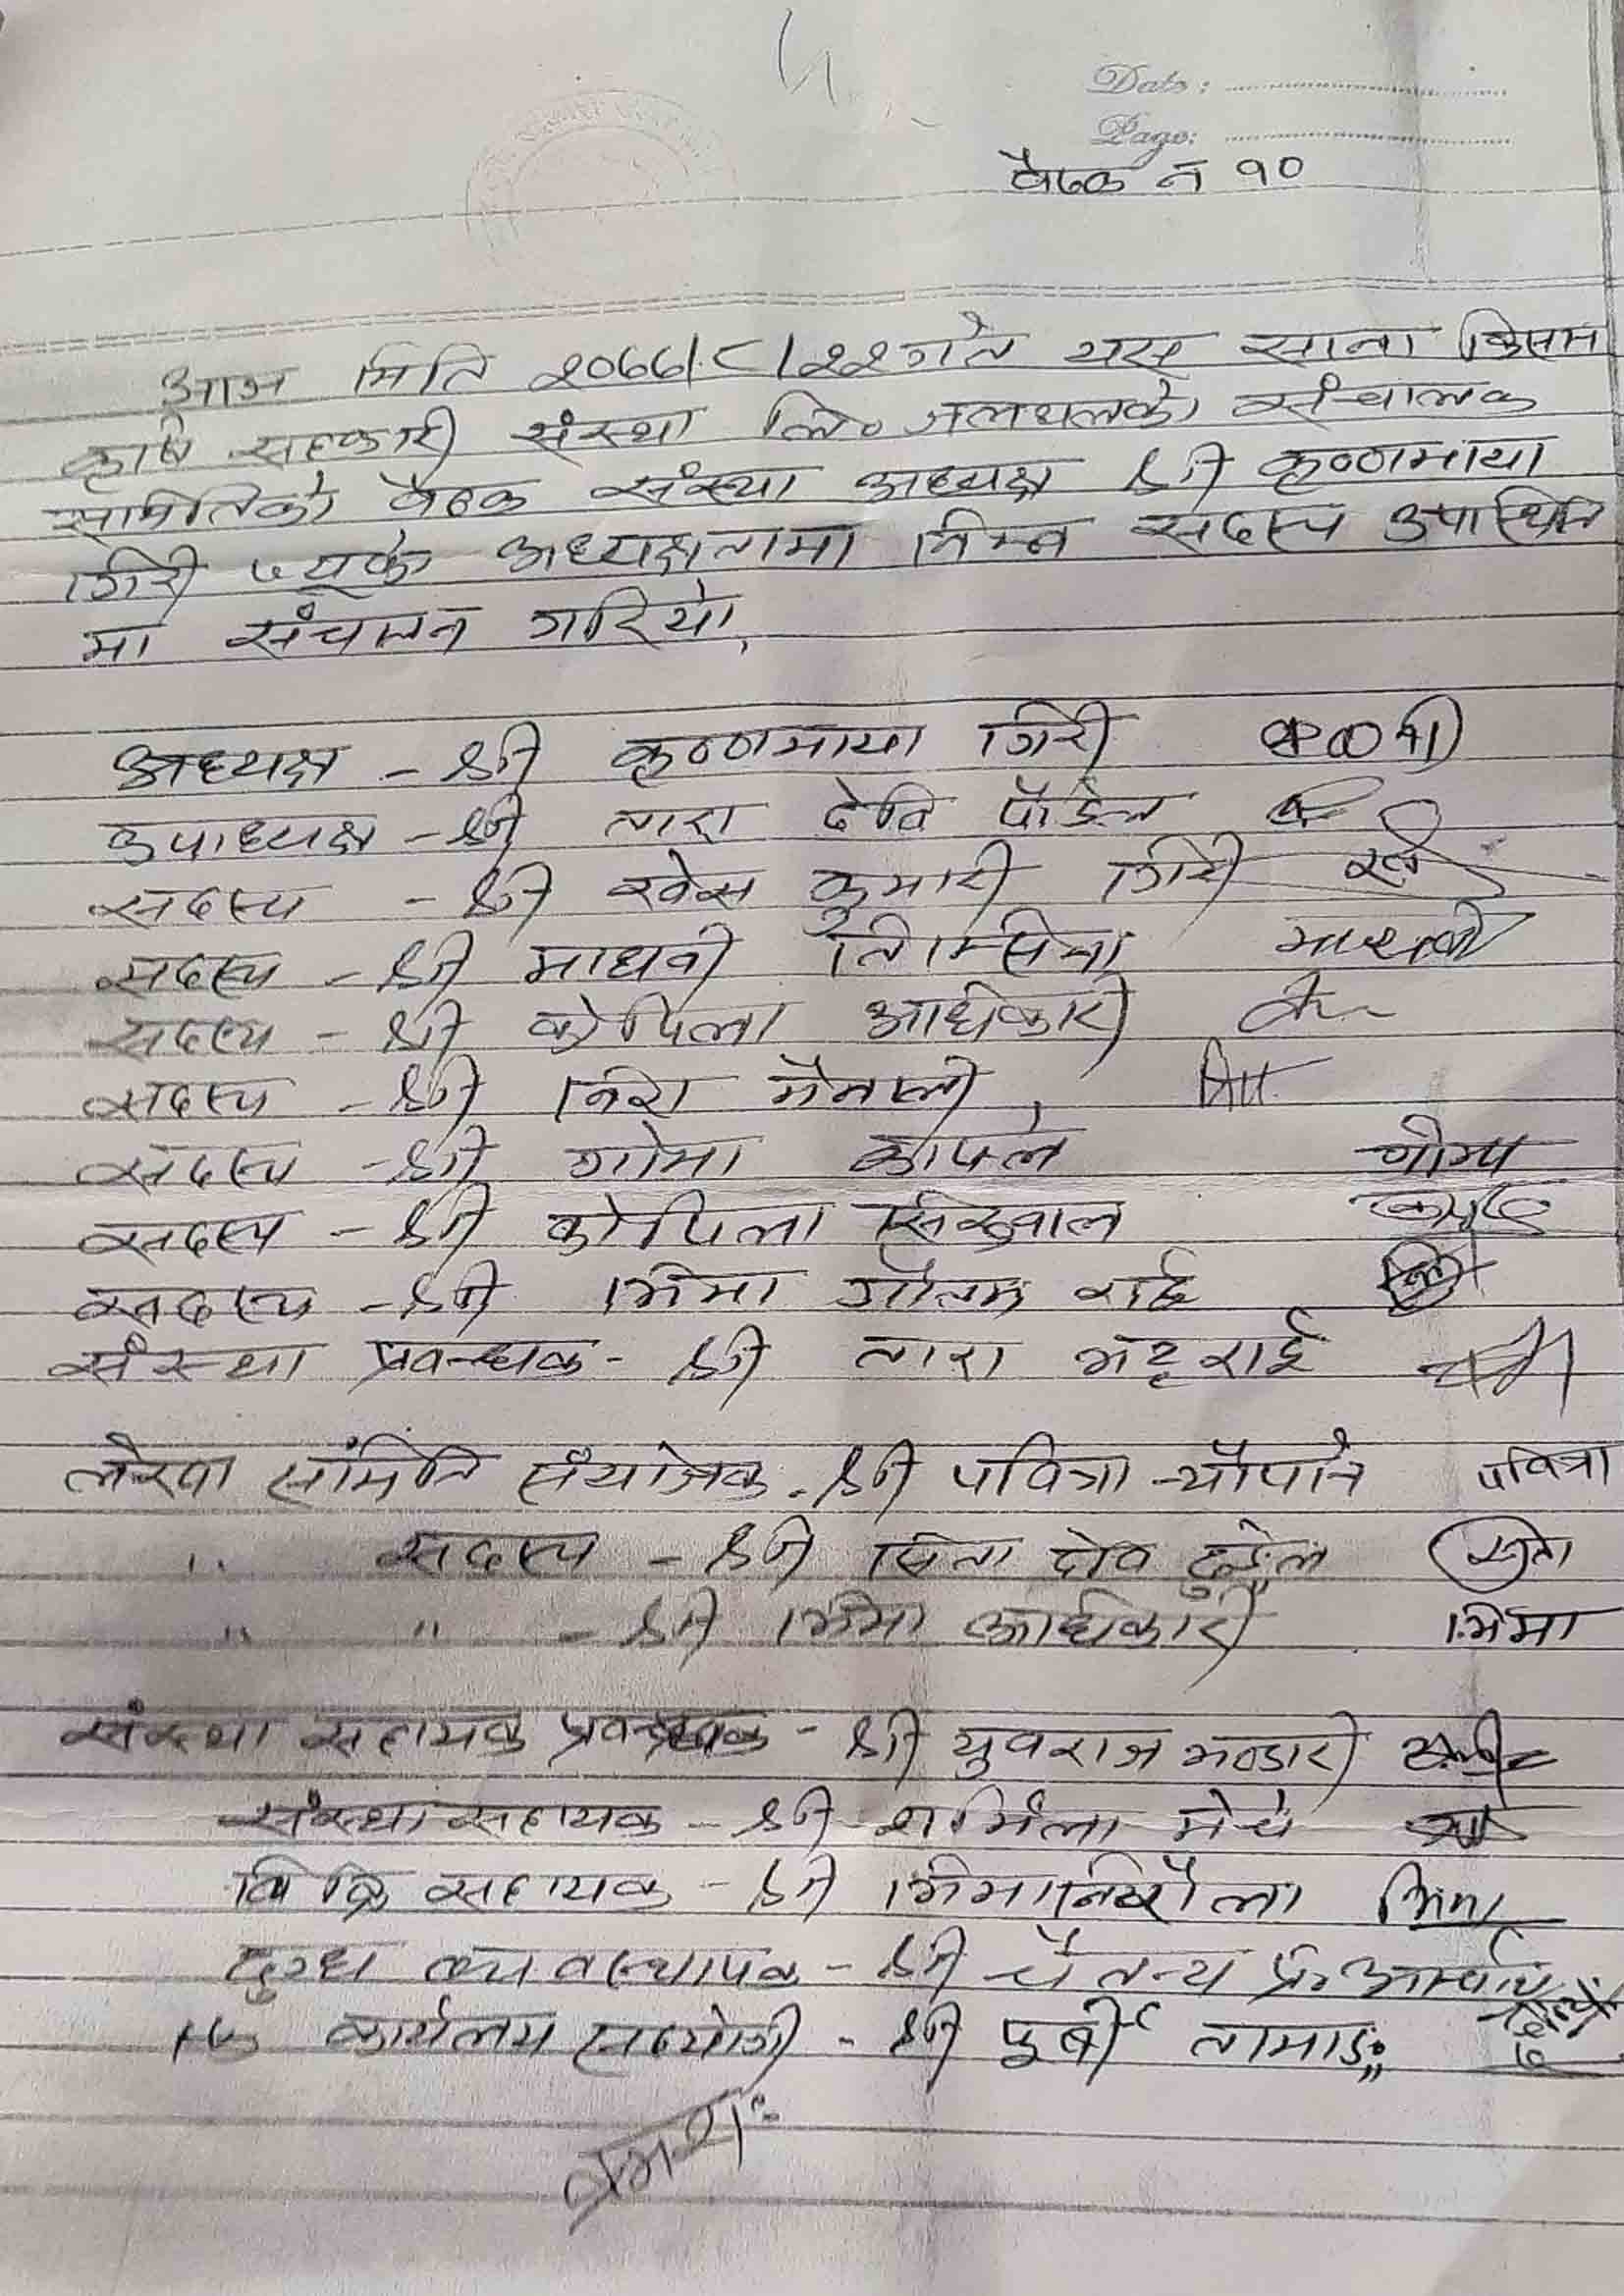 Date :
Page:
बैठक नं १०
आज मिति २०७७।८।२२गते यस साना किसान
कृषि सहकारी संस्था लि० जलथलको संचालक
समितिको बैठक संस्था अध्यक्ष श्री कृष्णमाया
गिरी ज्यूको अध्यक्षतामा निम्न सदस्य उपस्थिति
मा संचालन गरियो,
अध्यक्ष - श्री कृष्णमाया गिरी
उपाध्यक्ष - श्री तारा देवि पौडेल
सदस्य - श्री कुमारी गिरी
सदस्य - श्री माधवी तिम्सिना माधवी
सदस्य - श्री कोपिला अधिकारी
सदस्य - श्री निरा मैनाली
सदस्य - श्री गोमा काफ्ले गोमा
सदस्य - श्री कोपिला सिग्देल
सदस्य - श्री भिमा गौतम राई
संस्था प्रवन्धक - श्री तारा भट्टराई
लेखा समिति संयोजक - श्री पवित्रा न्यौपाने पवित्रा
" सदस्य - श्री सिता देवि ढुङ्गेल सिता
" " - श्री भिमा अधिकारी भिमा
संस्था सहायक प्रवन्धक - श्री युवराज भण्डारी
संस्था सहायक - श्री शर्मिला मेचे
बिक्रि सहायक - श्री भिमा निरौला भिमा
दुग्ध व्यवस्थापक - श्री चैतन्य प्र. आचार्य
कार्यलय सहयोगी - श्री पूर्बी तामाङ
क्रमशः